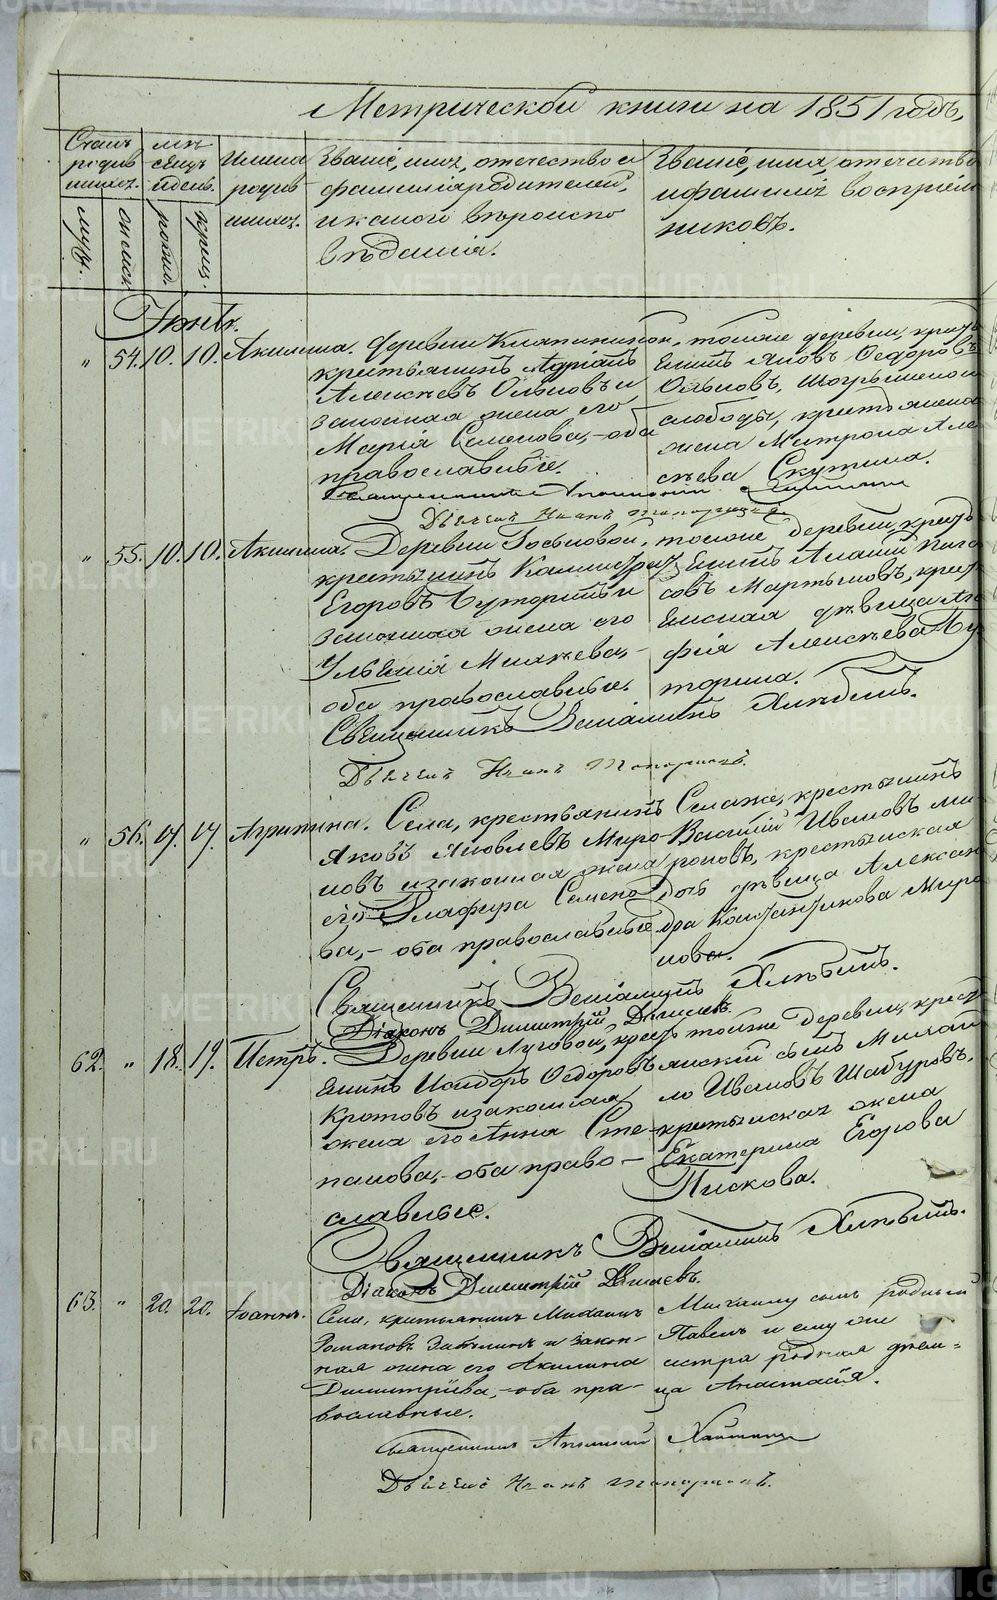 Метрической книги на 1851 годъ,
Счетъ родив шихся.
мѣ сяцъ и день.
Имена родив шихся.
Званіе, имя, отечество и
фамилія родителей,
и какого вѣроиспо
вѣданія.
Званіе, имя, отечество
и фамилія воспріем
никовъ.
муж.
женск.
рожд.
крещ.
Іюнь.
" 54. 10. 10. Акилина. Деревни
крестьянинъ Адріанъ
Алексѣевъ Ольковъ и
законная жена его
Марія Семенова, - оба
православные.
тойже деревни, кресть
янинъ Яковъ Ѳедоровъ
Ольковъ,
слободы, крестьянская
жена Матрона Але
сѣева Скутина.
Дьячекъ Иванъ Топорковъ.
" 55. 10. 10. Акилина. Деревни
крестьянинъ Каллистратъ
Егоровъ Буторинъ и
законная жена его
Ульянія Михѣева, -
оба православные.
тойже деревни, кресть
янинъ
совъ Мартыновъ, крест
янская дѣвица
фія Алексѣева Бу
торина.
Священникъ Веніаминъ Хлѣбинъ.
Дьячекъ Иванъ Топорковъ.
" 56. 17. 17. Агрипина. Села, крестьянинъ
Яковъ Яковлевъ Миро-
новъ и законная жена
его Глафира Семено
ва, - оба православные
Села же, крестьянинъ
Василій Ивановъ Ми
роновъ, крестьянская
дочь дѣвица Алексан
дра Константинова Миро
нова.
Священникъ Веніаминъ Хлѣбинъ.
Діаконъ Димитрій
62. " 18. 19. Петръ. Деревни Луговой, крест
янинъ Исидоръ Ѳедоровъ
Кротовъ и законная
жена его Анна Сте-
панова, - оба право-
славные.
тойже деревни, крест
янскій сынъ Михаи
ло Ивановъ Шабуровъ,
крестьянская жена
Екатерина Егорова
Пискова.
Священникъ Веніаминъ Хлѣбинъ.
Діаконъ Димитрій
63. " 20. 20. Іоаннъ. Села, крестьянинъ Михаилъ
Романовъ и закон-
ная жена его Акилина
Димитріева, - оба пра-
вославные.
Михаилу сынъ родный
Павелъ и ему же
сестра родная дѣви-
ца Анастасія.
Священникъ
Дьячекъ Иванъ Топорковъ.
METRIKI.GASO-URAL.RU